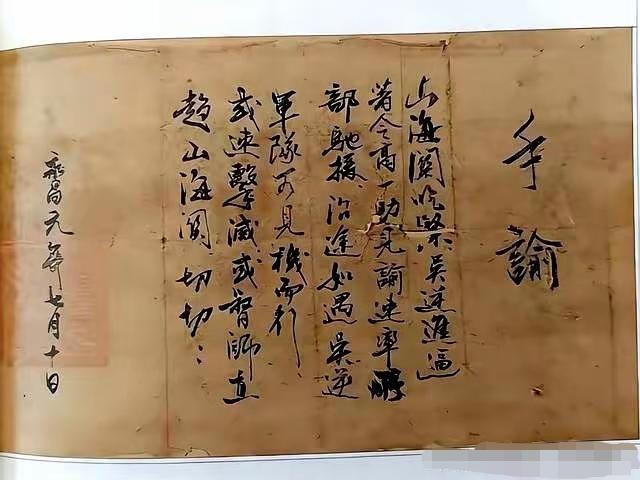 手諭
山海関吃緊吳逆進逼
著令高一功見諭速率所
部馳援、沿途如遇吳逆
軍隊可見機而行
或速擊滅或智師直
趨山海関切切：
永昌元年七月十日